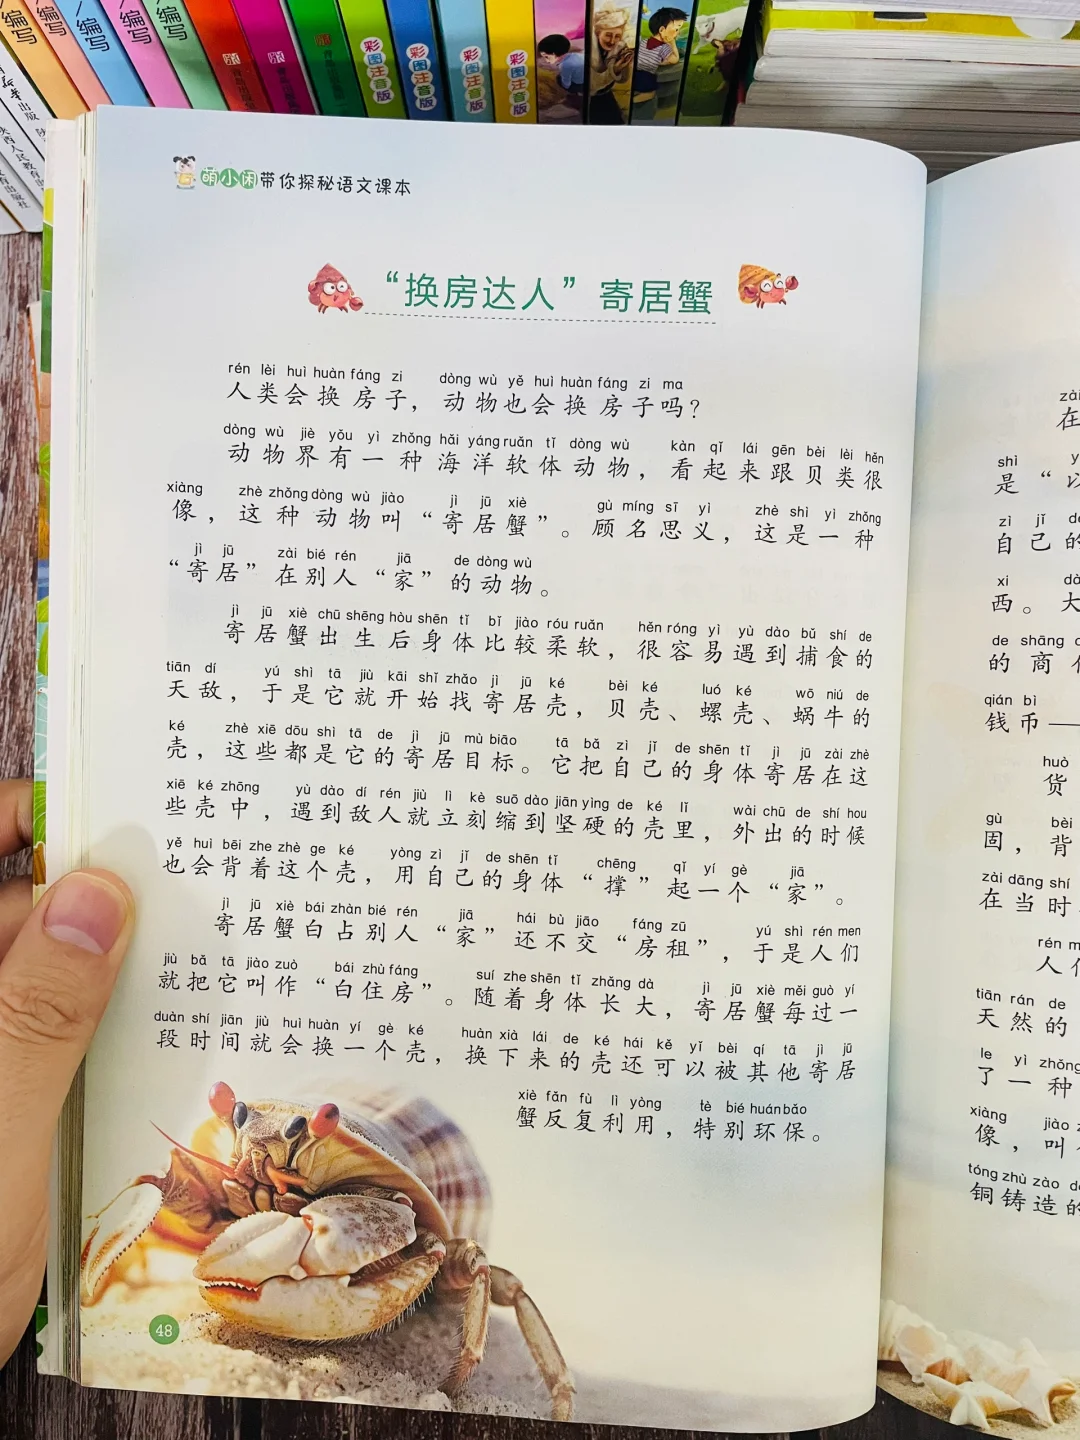 编写
编写
编写
编写
编写
彩图注音版
彩图注音版
彩图注音版
彩图注音版
萌小闲带你探秘语文课本
“换房达人”寄居蟹
rén lèi huì huàn fáng zi dòng wù yě huì huàn fáng zi ma
人类会换房子，动物也会换房子吗？
dòng wù jiè yǒu yì zhǒng hǎi yáng ruǎn tǐ dòng wù kàn qǐ lái gēn bèi lèi hěn
动物界有一种海洋软体动物，看起来跟贝类很
xiàng zhè zhǒng dòng wù jiào jì jū xiè gù míng sī yì zhè shì yì zhǒng
像，这种动物叫“寄居蟹”。顾名思义，这是一种
jì jū zài bié rén jiā de dòng wù
“寄居”在别人“家”的动物。
jì jū xiè chū shēng hòu shēn tǐ bǐ jiào róu ruǎn hěn róng yì yù dào bǔ shí de
寄居蟹出生后身体比较柔软，很容易遇到捕食的
tiān dí yú shì tā jiù kāi shǐ zhǎo jì jū ké bèi ké luó ké wō niú de
天敌，于是它就开始找寄居壳，贝壳、螺壳、蜗牛的
ké zhè xiē dōu shì tā de jì jū mù biāo tā bǎ zì jǐ de shēn tǐ jì jū zài zhè
壳，这些都是它的寄居目标。它把自己的身体寄居在这
xiē ké zhōng yù dào dí rén jiù lì kè suō dào jiān yìng de ké lǐ wài chū de shí hou
些壳中，遇到敌人就立刻缩到坚硬的壳里，外出的时候
yě huì bēi zhe zhè ge ké yòng zì jǐ de shēn tǐ chēng qǐ yí gè jiā
也会背着这个壳，用自己的身体“撑”起一个“家”。
jì jū xiè bái zhàn bié rén jiā hái bù jiāo fáng zū yú shì rén men
寄居蟹白占别人“家”还不交“房租”，于是人们
jiù bǎ tā jiào zuò bái zhù fáng suí zhe shēn tǐ zhǎng dà jì jū xiè měi guò yí
就把它叫作“白住房”。随着身体长大，寄居蟹每过一
duàn shí jiān jiù huì huàn yí gè ké huàn xià lái de ké hái kě yǐ bèi qí tā jì jū
段时间就会换一个壳，换下来的壳还可以被其他寄居
xiè fǎn fù lì yòng tè bié huán bǎo
蟹反复利用，特别环保。
48
zài
在
shì
是“
zì jǐ
自己的
xi
西。大
de shāng
的商
qián bì
钱币——
huò
货
gù bèi
固，背
zài dāng shí
在当时
rén
人们
tiān rán de
天然的
le yì zhǒng
了一种
xiàng jiào
像，叫
tóng zhù zào
铜铸造的